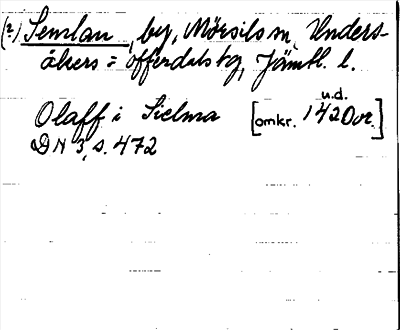 (?) Semlan, by, Mörsils sn, Unders-
åkers = offerdals tg, Jämtl. l.
Olaff i Sielma [omkr. 1420 or.]
u.d.
DN 3, s. 472